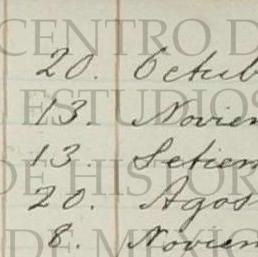 20. Octub
13. Novien
13. Setiem
20. Agos
8. Novien
CENTRO D
ESTUDIOS
DE HISTOR
DE MEXIC